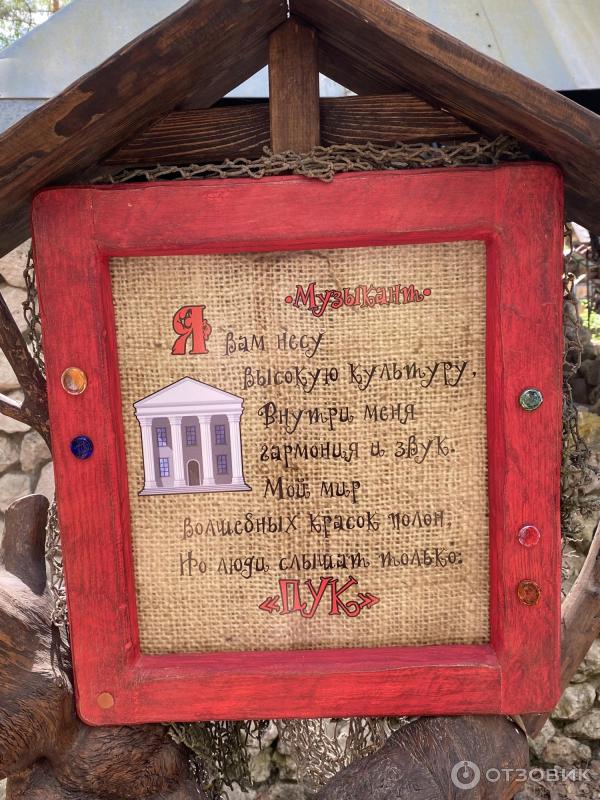 •Музыкант•
Я вам несу
высокую культуру,
Внутри меня
гармония и звук.
Мой мир
волшебных красок полон,
Но люди слышат только:
«ПУК»
ОТЗОВИК